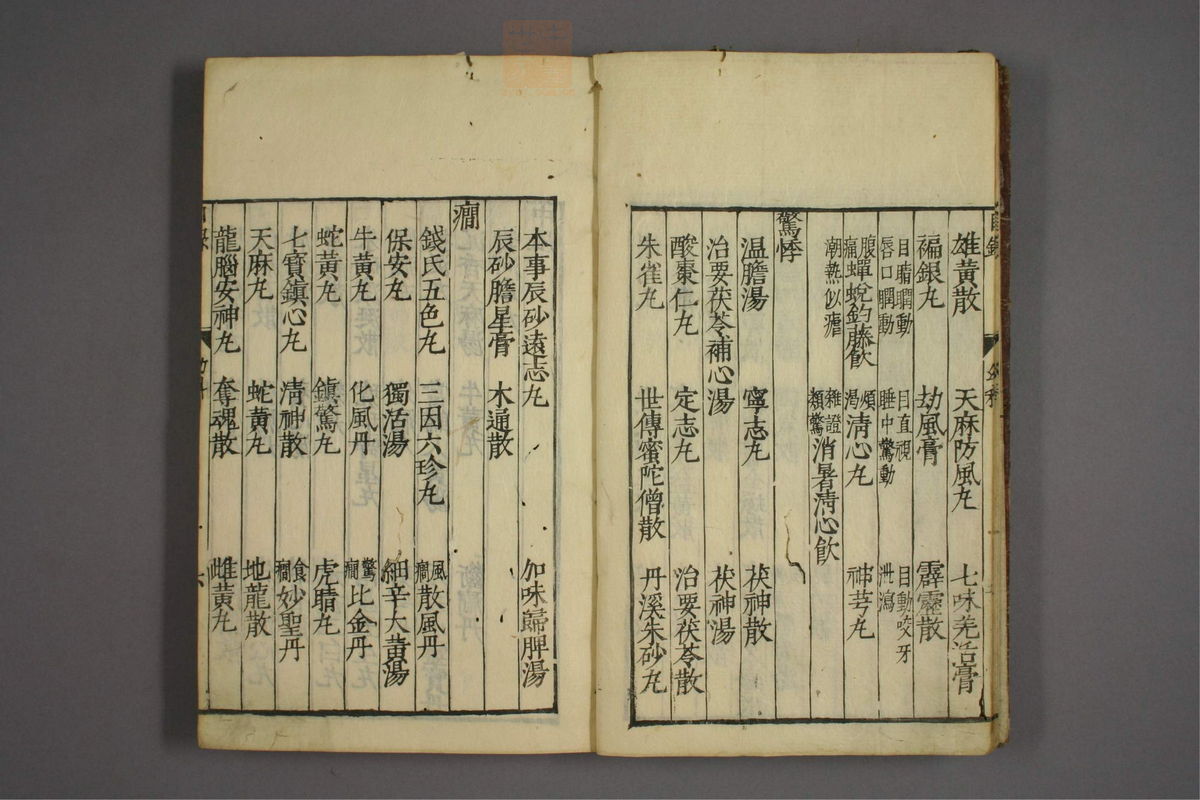 雄黃散　天麻防風丸　七味羌活膏
褊銀丸　劫風膏　霹靂散
目睛瞤動　目直視　目動咬牙
唇口瞤動　睡中驚動　泄瀉
腹痛蟬蛻釣藤飲　煩渴清心丸　神芎丸
潮熱似瘧　雜證類驚消暑清心飲
驚悸
温膽湯　寧志丸　茯神散
治要茯苓補心湯　茯神湯
酸棗仁丸　定志丸　治要茯苓散
朱雀丸　世傳蜜陀僧散　丹溪朱砂丸
本事辰砂遠志丸　加味歸脾湯
辰砂膽星膏　木通散
癇
錢氏五色丸　三因六珍丸　風癇散風丹
保安丸　獨活湯　細辛大黃湯
牛黃丸　化風丹　驚癇比金丹
蛇黃丸　鎮驚丸　虎睛丸
七寶鎮心丸　清神散　食癇妙聖丹
天麻丸　蛇黃丸　地龍散
龍腦安神丸　奪魂散　雌黃丸